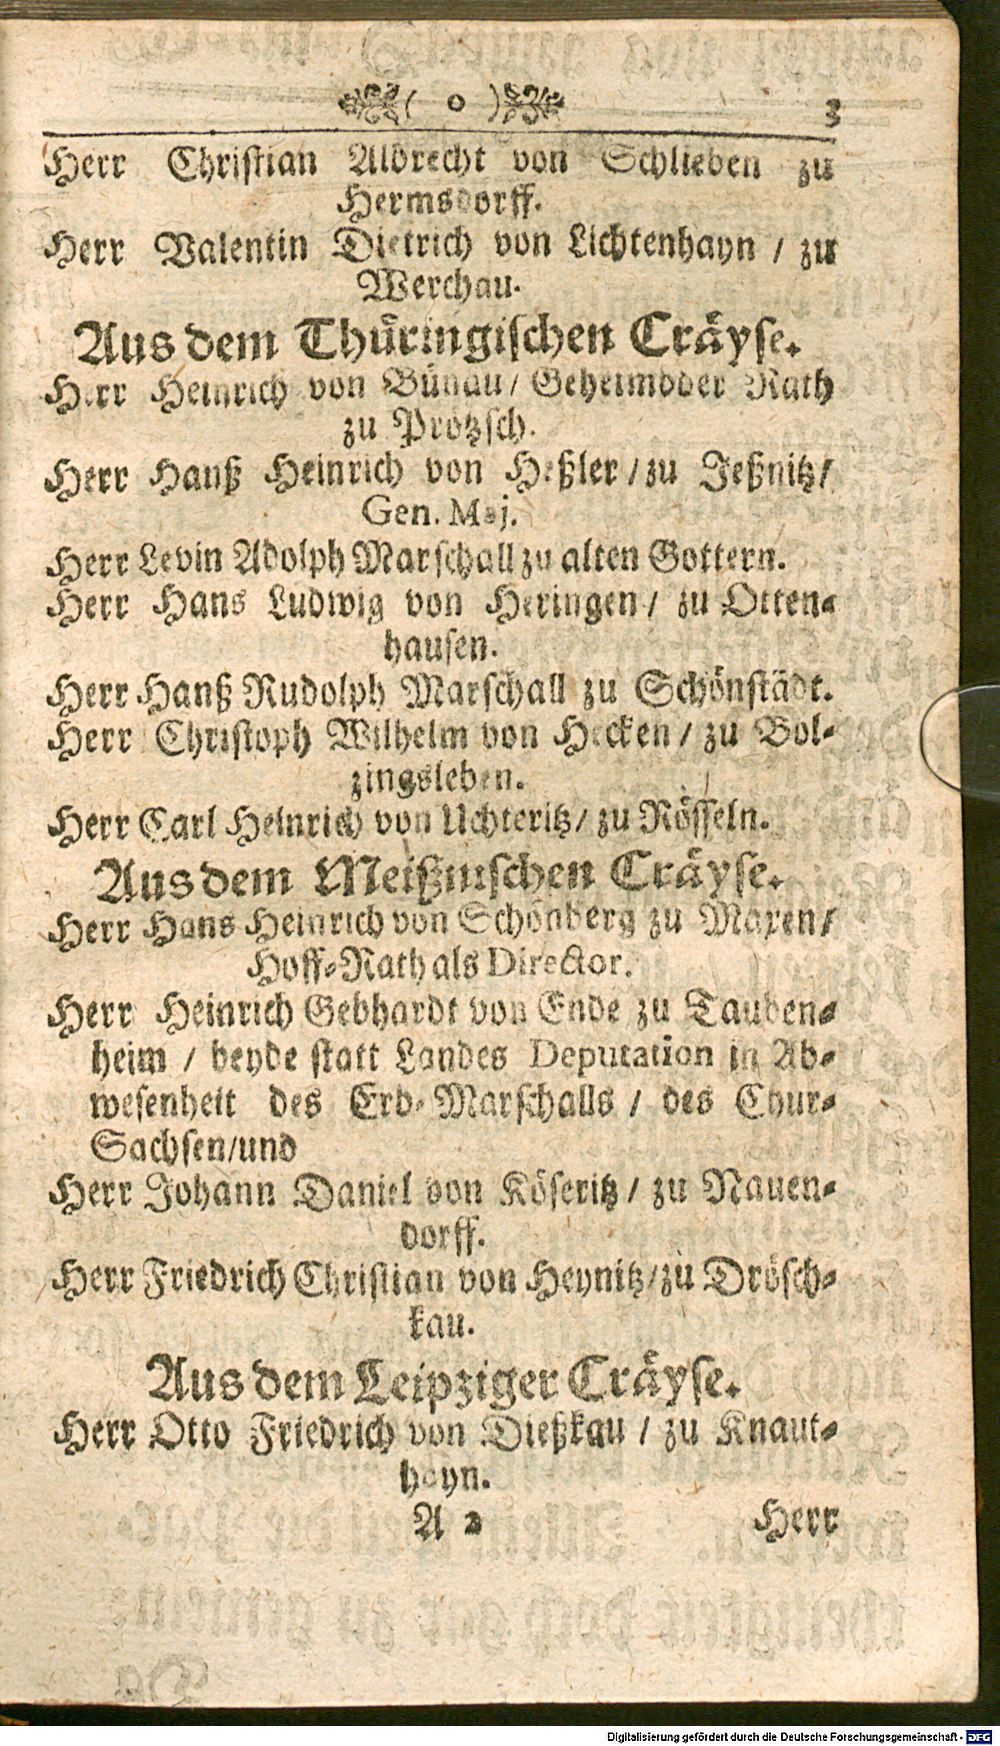 ( o ) 3
Herr Christian Albrecht von Schlieben zu
Hermsdorff.
Herr Valentin Dietrich von Lichtenhayn / zu
Werchau.
Aus dem Thüringischen Cräyse.
Herr Heinrich von Bünau / Geheimbder Rath
zu Prötzsch.
Herr Hanß Heinrich von Heßler / zu Jeßnitz /
Gen. Maj.
Herr Levin Adolph Marschall zu alten Gottern.
Herr Hans Ludwig von Heringen / zu Otten-
hausen.
Herr Hanß Rudolph Marschall zu Schönstädt.
Herr Christoph Wilhelm von Hecken / zu Bol-
zingsleben.
Herr Carl Heinrich von Uchteritz / zu Rösseln.
Aus dem Meißnischen Cräyse.
Herr Hans Heinrich von Schönberg zu Maxen /
Hoff-Rath als Director.
Herr Heinrich Gebhardt von Ende zu Tauben-
heim / beyde statt Landes Deputation in Ab-
wesenheit des Erb-Marschalls / des Chur-
Sachsen / und
Herr Johann Daniel von Köseritz / zu Nauen-
dorff.
Herr Friedrich Christian von Heynitz / zu Drösch-
kau.
Aus dem Leipziger Cräyse.
Herr Otto Friedrich von Dießkau / zu Knaut-
hayn.
A 2 Herr
Digitalisierung gefördert durch die Deutsche Forschungsgemeinschaft - DFG